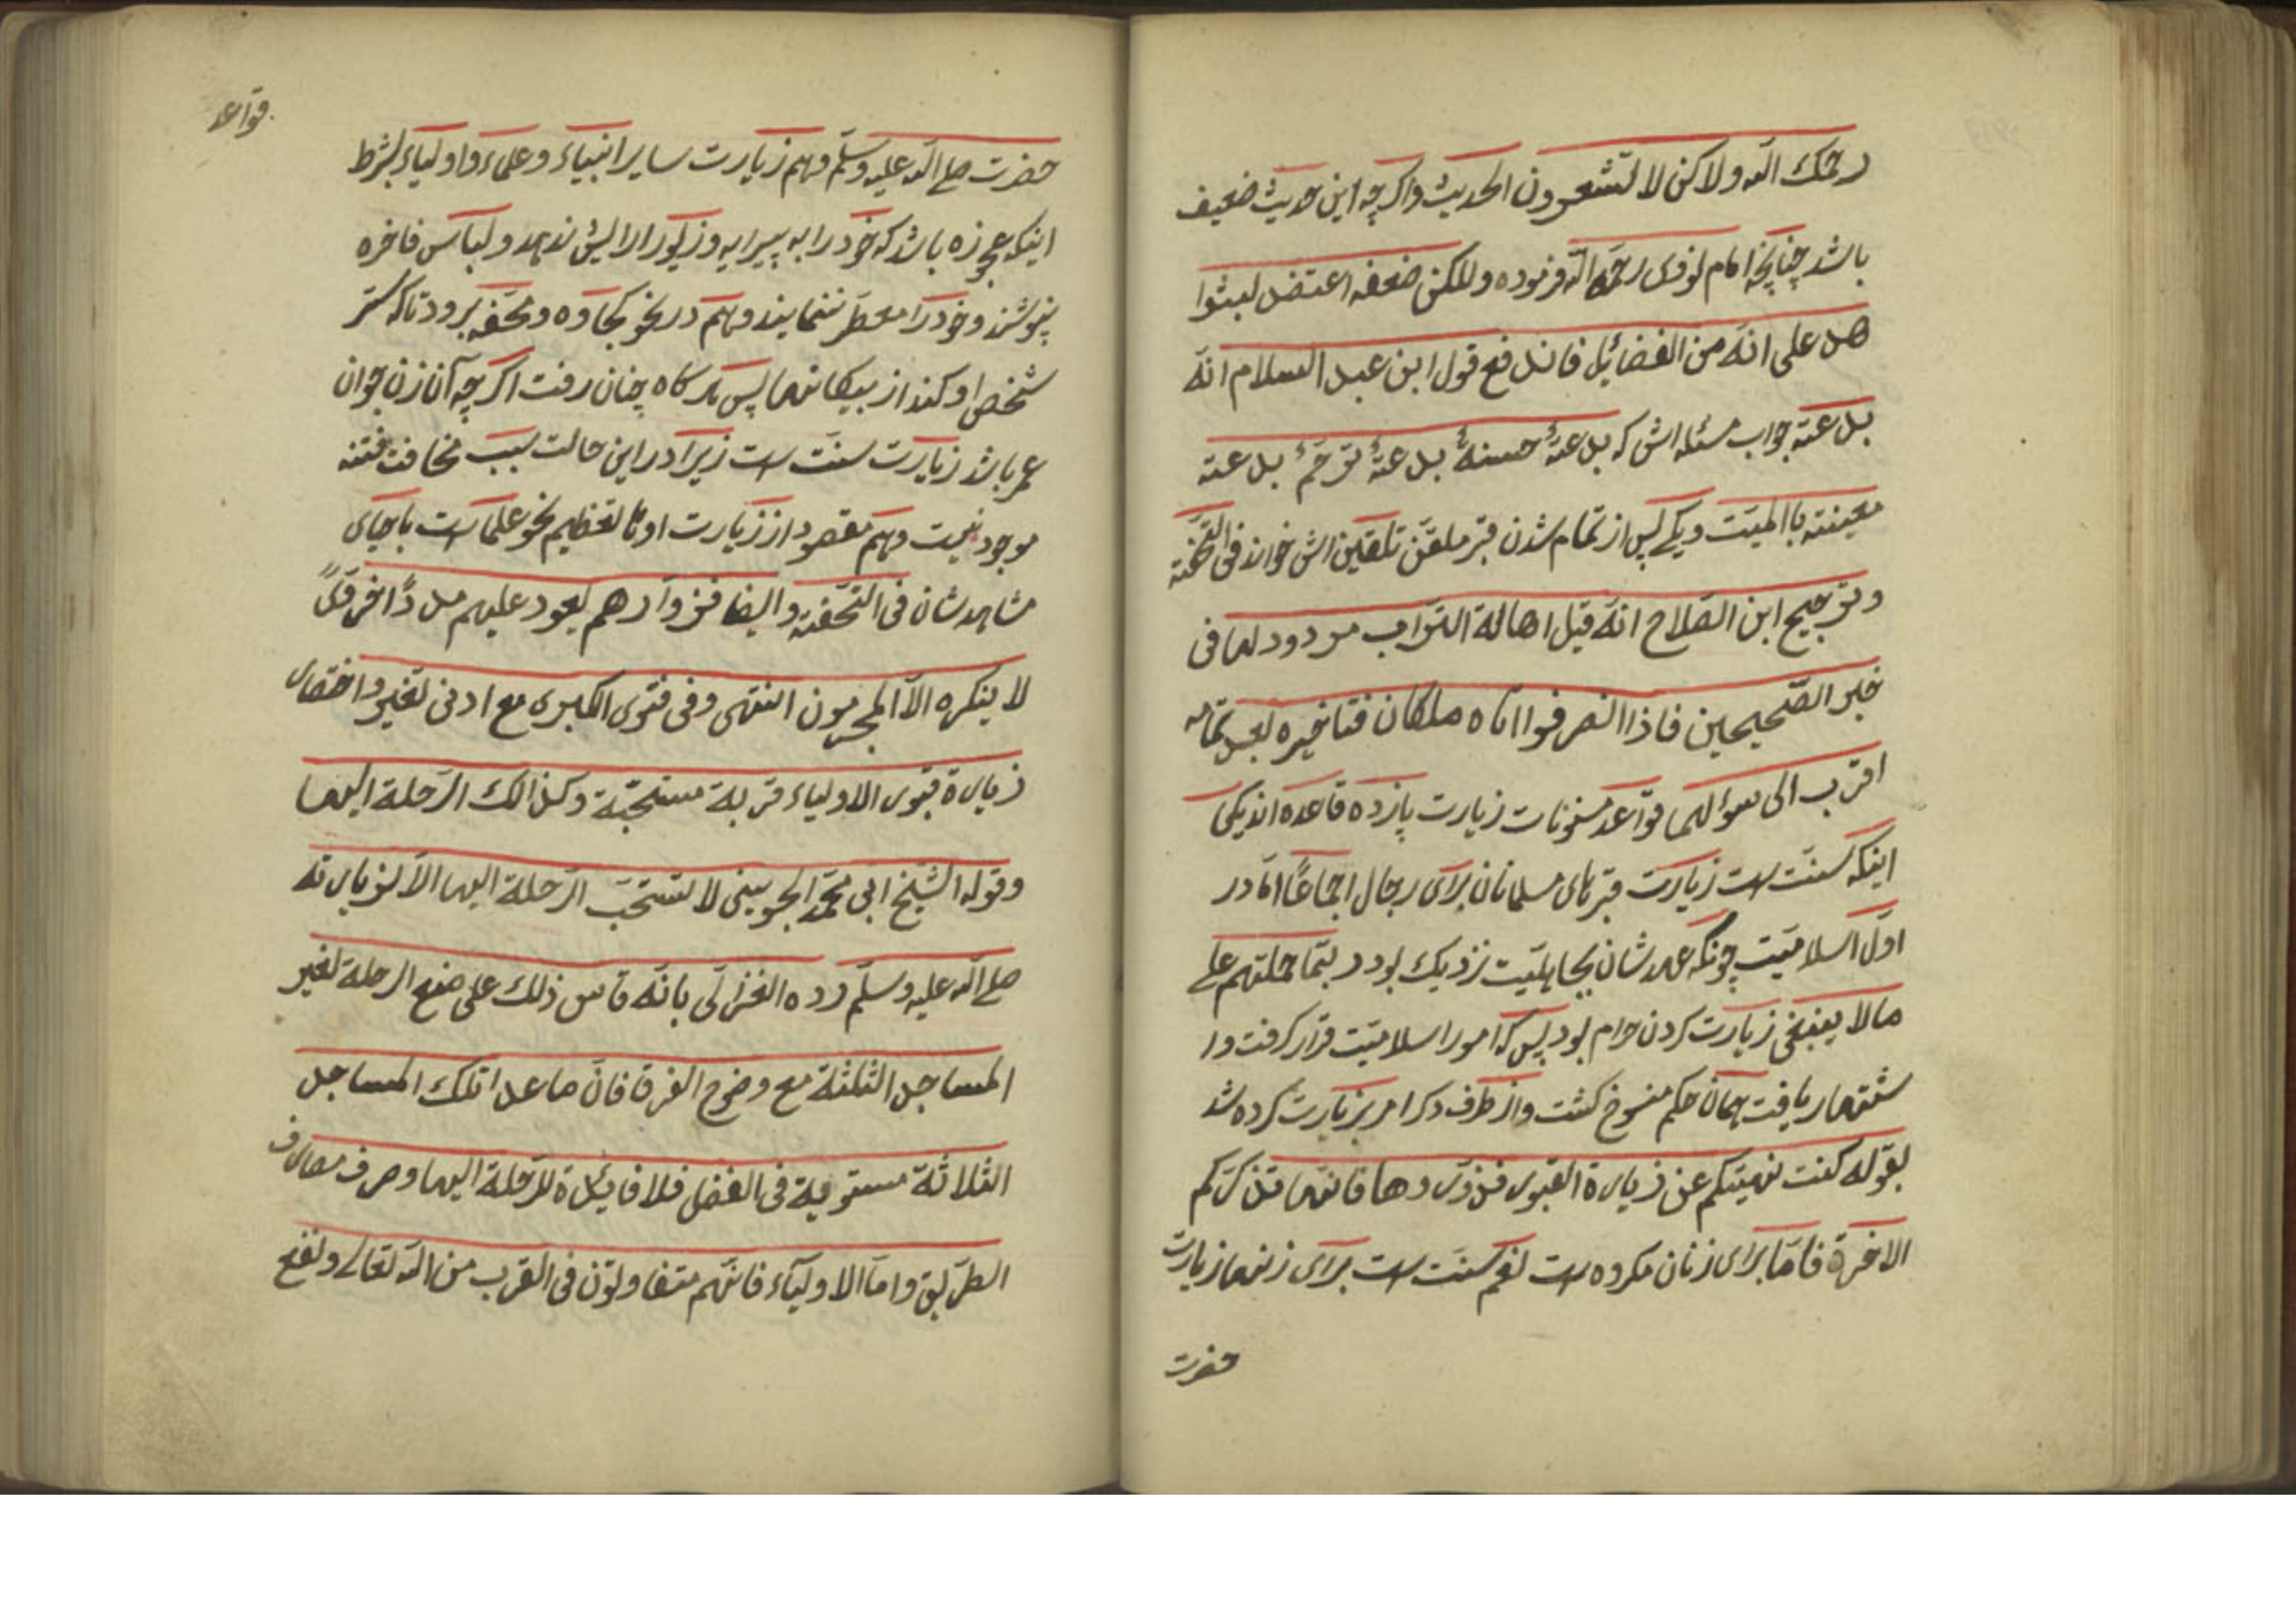 رحمك الله ولاكن لا تشعرون الحديث واكرچه اين حديث ضعيف
باشد چنانچه امام نووى رحمه الله فرموده وللكن ضعفه اعتضل بشوا
هل على انّه من الفضائل فانل فع قول ابن عبل السلام انّه
بل عته جواب مسئله اش كه بل عةٌ حسنةٌ بل عةٌ بل عته
معينته باالميّت ويكى پس از تمام شدن قبر ملقّن تلقين اش خواند فى التحفته
وترجيح ابن الصّلاح انّه قبل اهالة التراب مردود لما فى
خبر الصّحيحين فاذا انصرفوا اتاه ملكان فتاخيره بعل تمامه
اقرب الى سوٴلهما قواعد مسنونات زيارت پانزده قاعده اند يكى
اينكه سنّت است زيارت قبرهاى مسلمانان براى رجال اجماعًا امّا در
اوّل اسلاميّت چونكه عهد شان بجاهليّت نزديك بود ربّما حملتهم على
مالا ينبغى زيارت كردن حرام بود پس كه امور اسلاميّت قرار كرفت وا
شتهار يافت همان حكم منسوخ كشت واز طرف دكر امر بزيارت كرده شد
بقوله كنت نهيتكم عن زيارة القبور فزوروها فانّها تذكّركم
الاخرة فامّا براى زنان مكروه است نعم سنّت است براى زنها زيارت
حضرت
قواعد
حضرت صلى الله عليه وسلّم وهم زيارت ساير انبياء وعلماء واولياء بشرط
اينكه عجوزه باشد كه خود را به پيرايه وزيور الايش ندهد ولباس فاخره
نپوشند وخود را معطّر ننمايند وهم در نحو كجاوه ومحفّه برود تاكه ستر
شخص او كند از بيكانها پس هركاه چنان رفت اكرچه آن زن جوان
عمر باشد زيارت سنّت است زيرا در اين حالت سبب مخافت فتنه
موجود نيست وهم مقصود از زيارت اوتا تعظيم نحو علما است با حياى
مشاهد شان فى التحفته وايضا فزوّارهم يعود عليهم مل دًا خرو
لا ينكره الّا المجرمون انتهى وفى فتوى الكبرى مع ادنى تغيير واختصار
زيارة قبور الاولياء قربة مستحبّة وكذالك الرّحلة اليها
وقوله الشيخ ابى محمّد الجوينى لا تستحبّ الرّحلة اليها الّا لزيارته
صلى الله عليه وسلّم ردّه الغزالى بانّه قاس ذلك على منع الرحلة لغير
المساجل الثلثة مع وضوح الفرق فانّ ما عل ا تلك المساجل
الثلاثة مستوية فى الفضل فلا فايدة للرّحلة اليها وصرف مصارف
الطريق وامّا الاولياء فانّهم متفاوتون فى القرب من الله تعالى ونفع